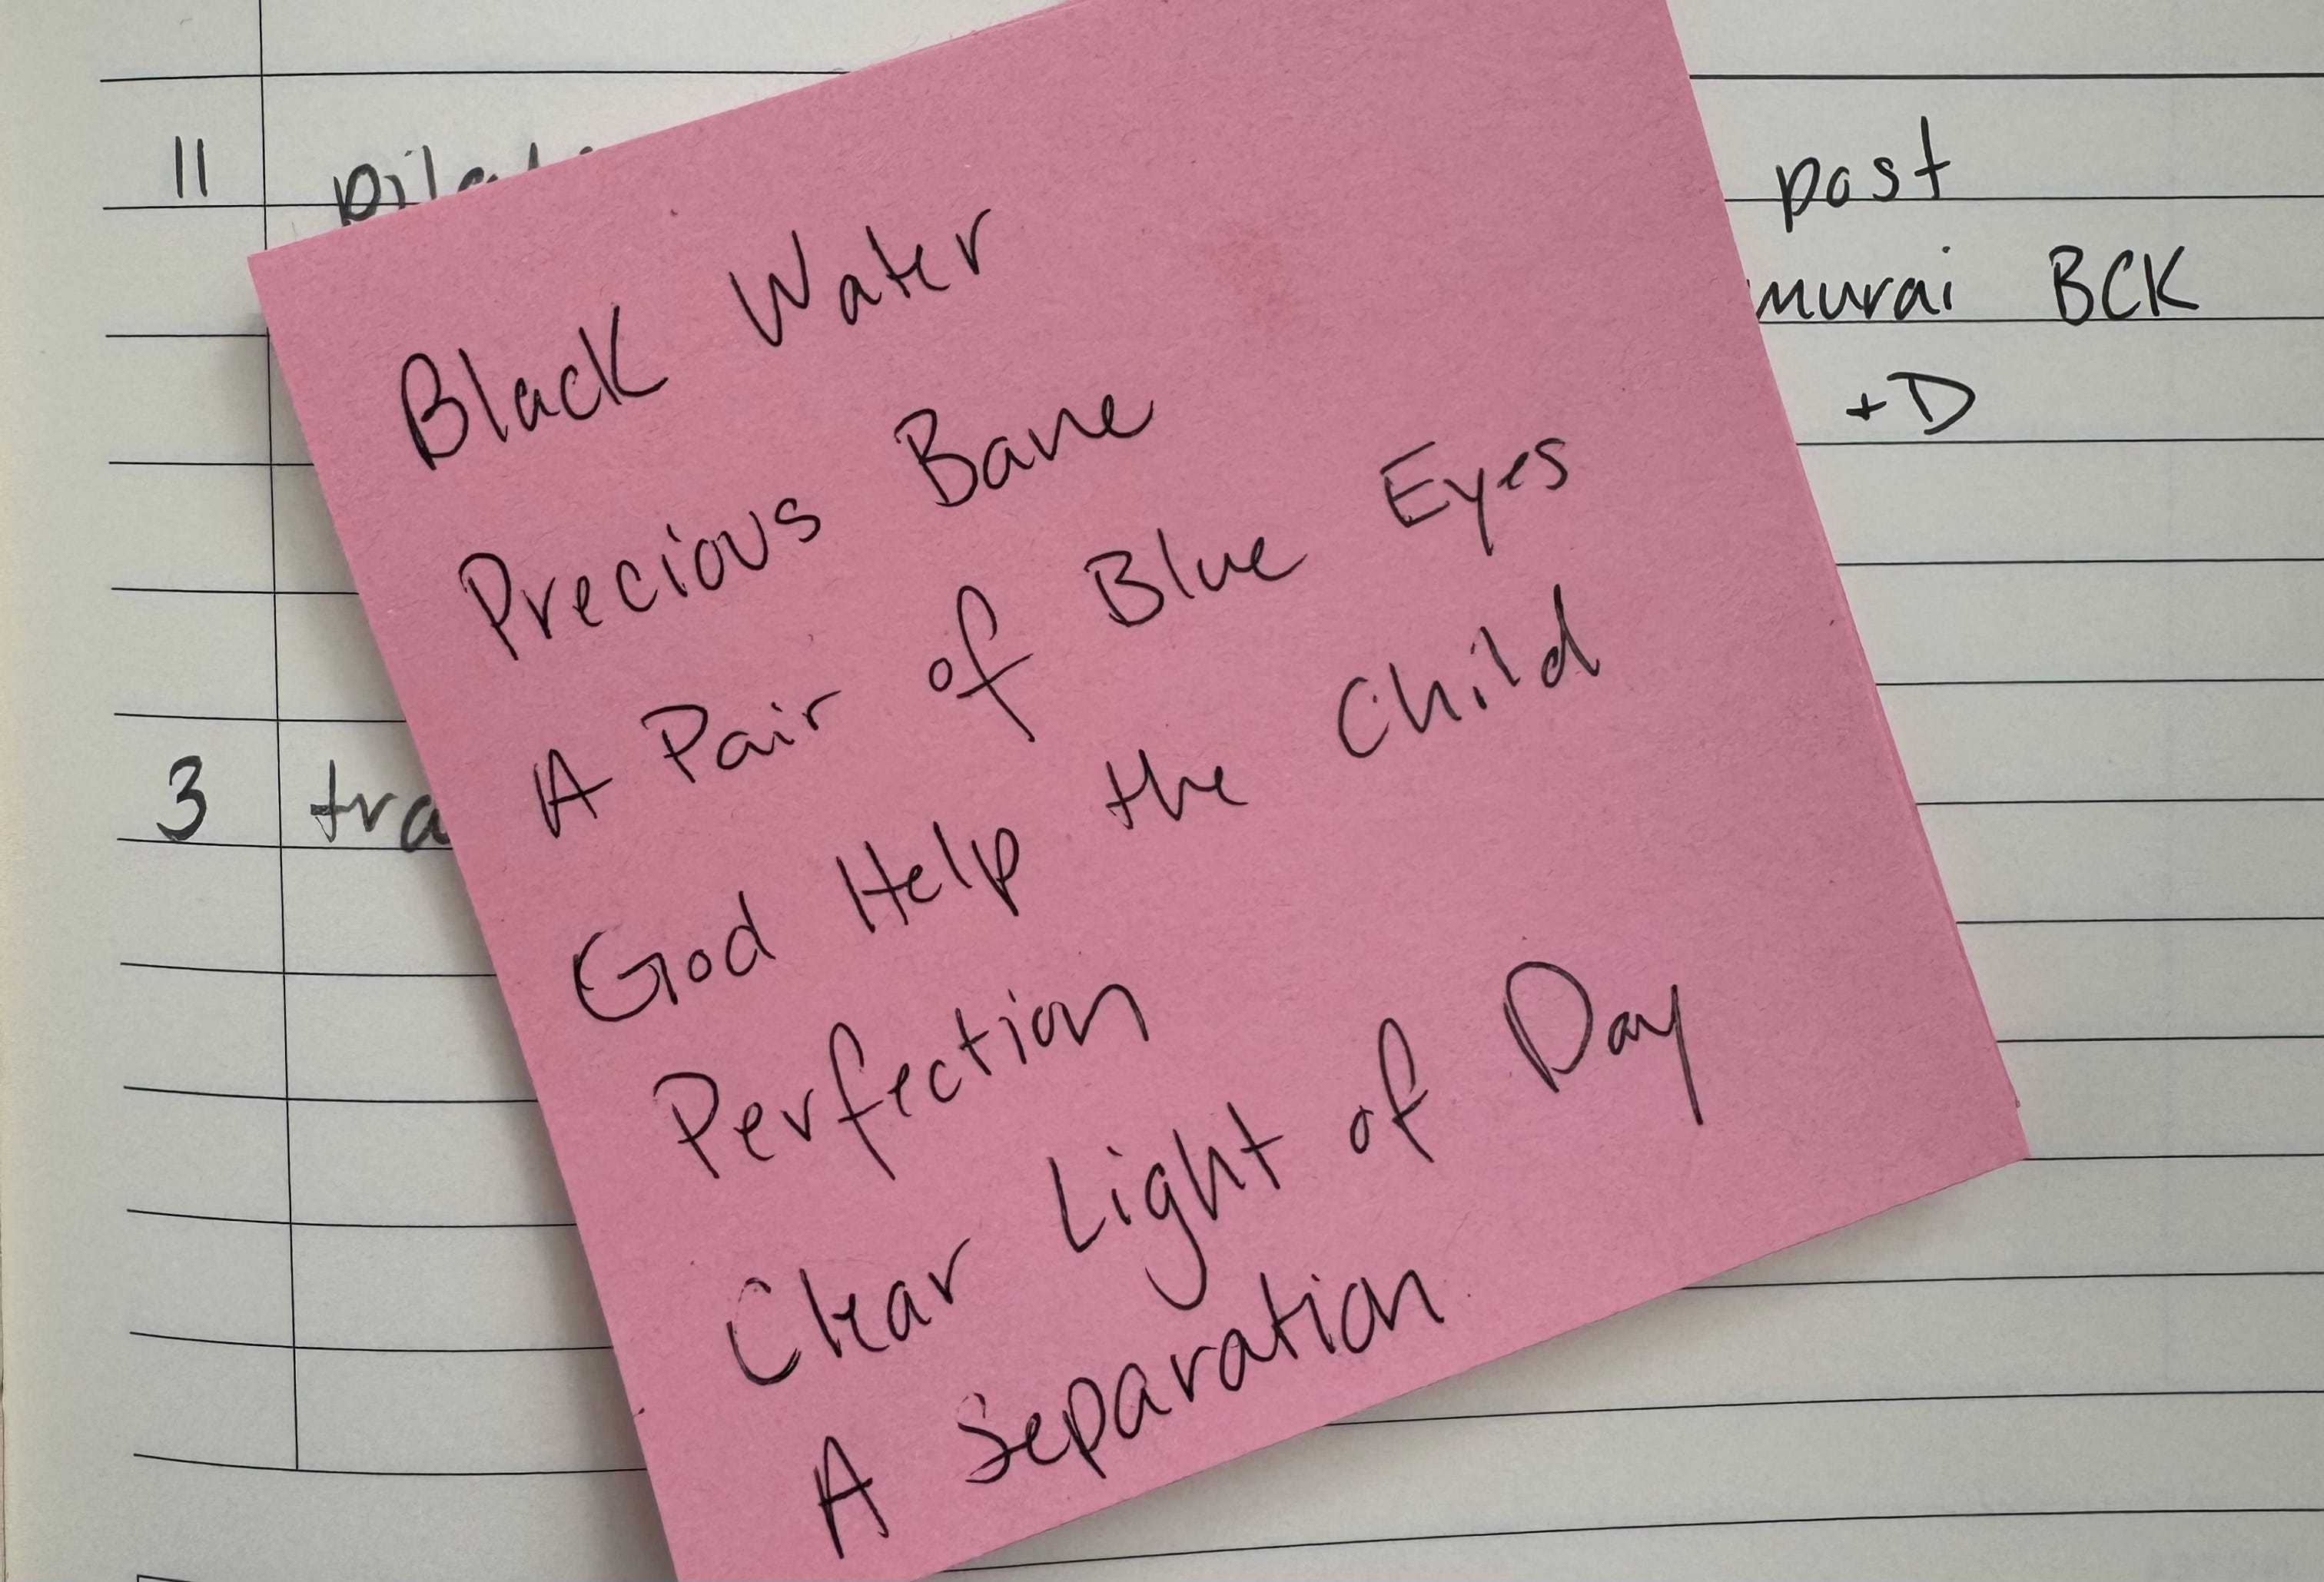 11
post
BCK
+D
3
Black Water
Precious Bane
A Pair of Blue Eyes
God Help the Child
Perfection
Clear Light of Day
A Separation